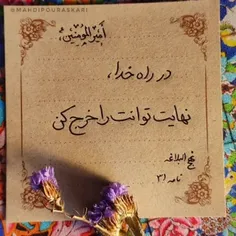 @MAHDIPOURASKARI
أمیرالمؤمنین
در راه خدا،
نهایت توانت را خرج کن
نهج البلاغه
نامه ۳۱